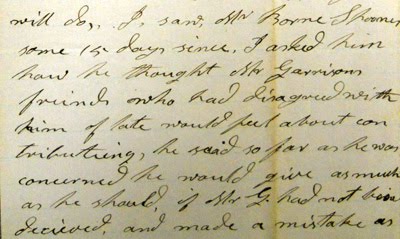 will do, . I. saw, Mr Borne Spooner
some 15 days since, I asked him
how he thought Mr Garrisons
friends who had disagreed with
him of late would feel about con
tributing, he said so far as he was
concerned he would give as much
as he should, if Mr G. had not bin
decieved, and made a mistake as